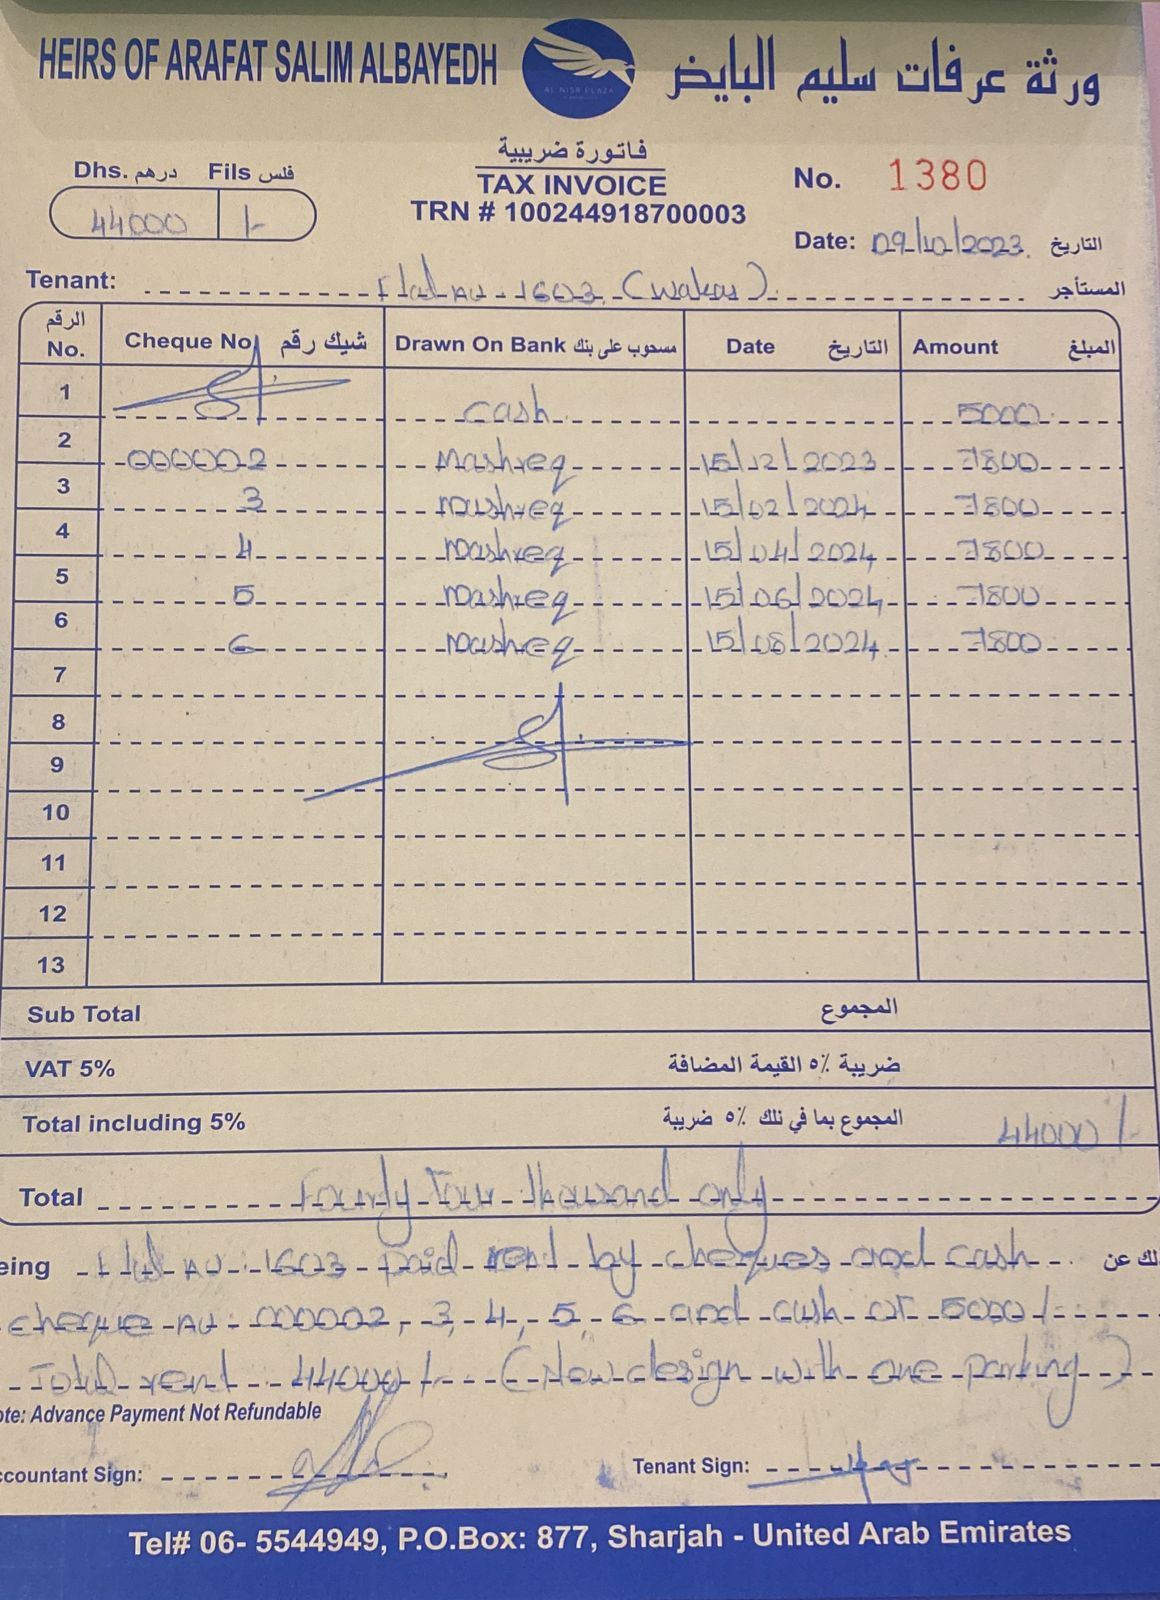 HEIRS OF ARAFAT SALIM ALBAYEDH
AL NISR PLAZA
ورثة عرفات سليم البايض
فاتورة ضريبية
TAX INVOICE
TRN # 100244918700003
Dhs. درهم Fils فلس
44000 /-
No. 1380
Date: 09/10/2023 التاريخ
Tenant: Flat No - 1603 (Wakas) المستأجر
الرقم No. Cheque No. شيك رقم Drawn On Bank مسحوب على بنك Date التاريخ Amount المبلغ
1 Cash 5000
2 000002 Mashreq 15/12/2023 7800
3 3 Mashreq 15/02/2024 7800
4 4 Mashreq 15/04/2024 7800
5 5 Mashreq 15/06/2024 7800
6 6 Mashreq 15/08/2024 7800
7
8
9
10
11
12
13
Sub Total المجموع
VAT 5% ضريبة ٥٪ القيمة المضافة
Total including 5% المجموع بما في ذلك ٥٪ ضريبة 44000/-
Total Fourty Four thousand only
eing Flat No - 1603 Paid rent by cheques and cash لك عن
cheque No - 000002, 3, 4, 5, 6 and cash of 5000/-
Total rent 44000/- (New design with one parking)
ote: Advance Payment Not Refundable
ccountant Sign:
Tenant Sign:
Tel# 06- 5544949, P.O.Box: 877, Sharjah - United Arab Emirates